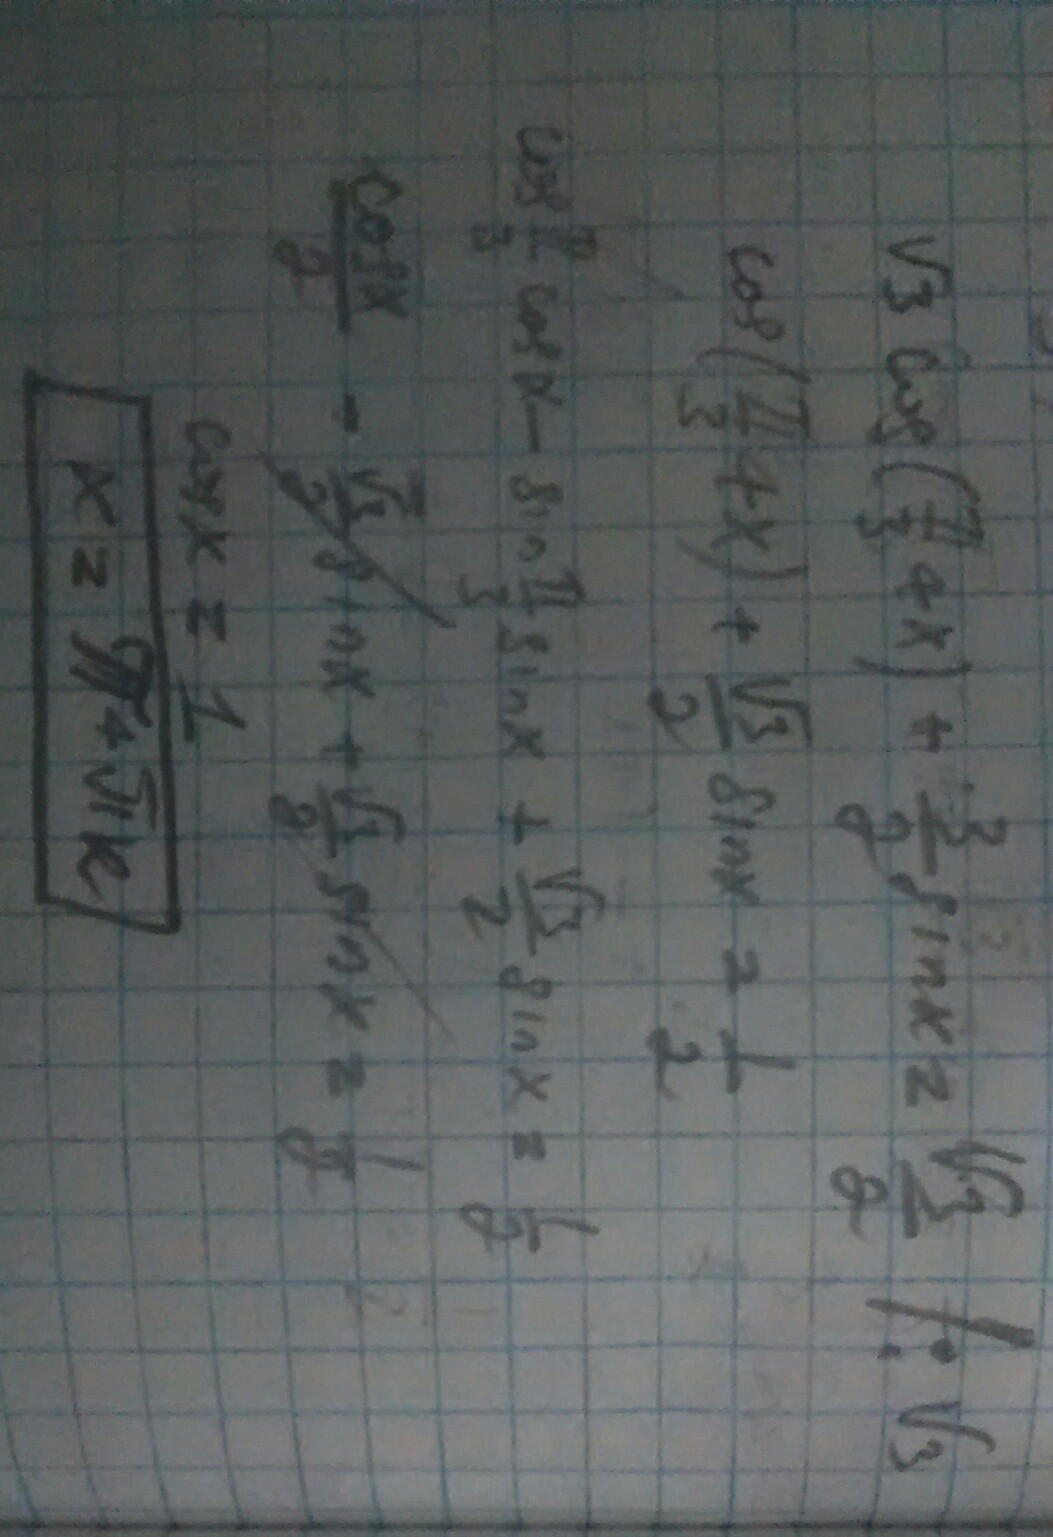 √3 cos(π/3 + x) + 3/2 sinx = √3/2 /: √3
cos(π/3 + x) + √3/2 sinx = 1/2
cos π/3 cosx - sin π/3 sinx + √3/2 sinx = 1/2
cosx/2 - √3/2 sinx + √3/2 sinx = 1/2
cosx = 1
x = π + πk